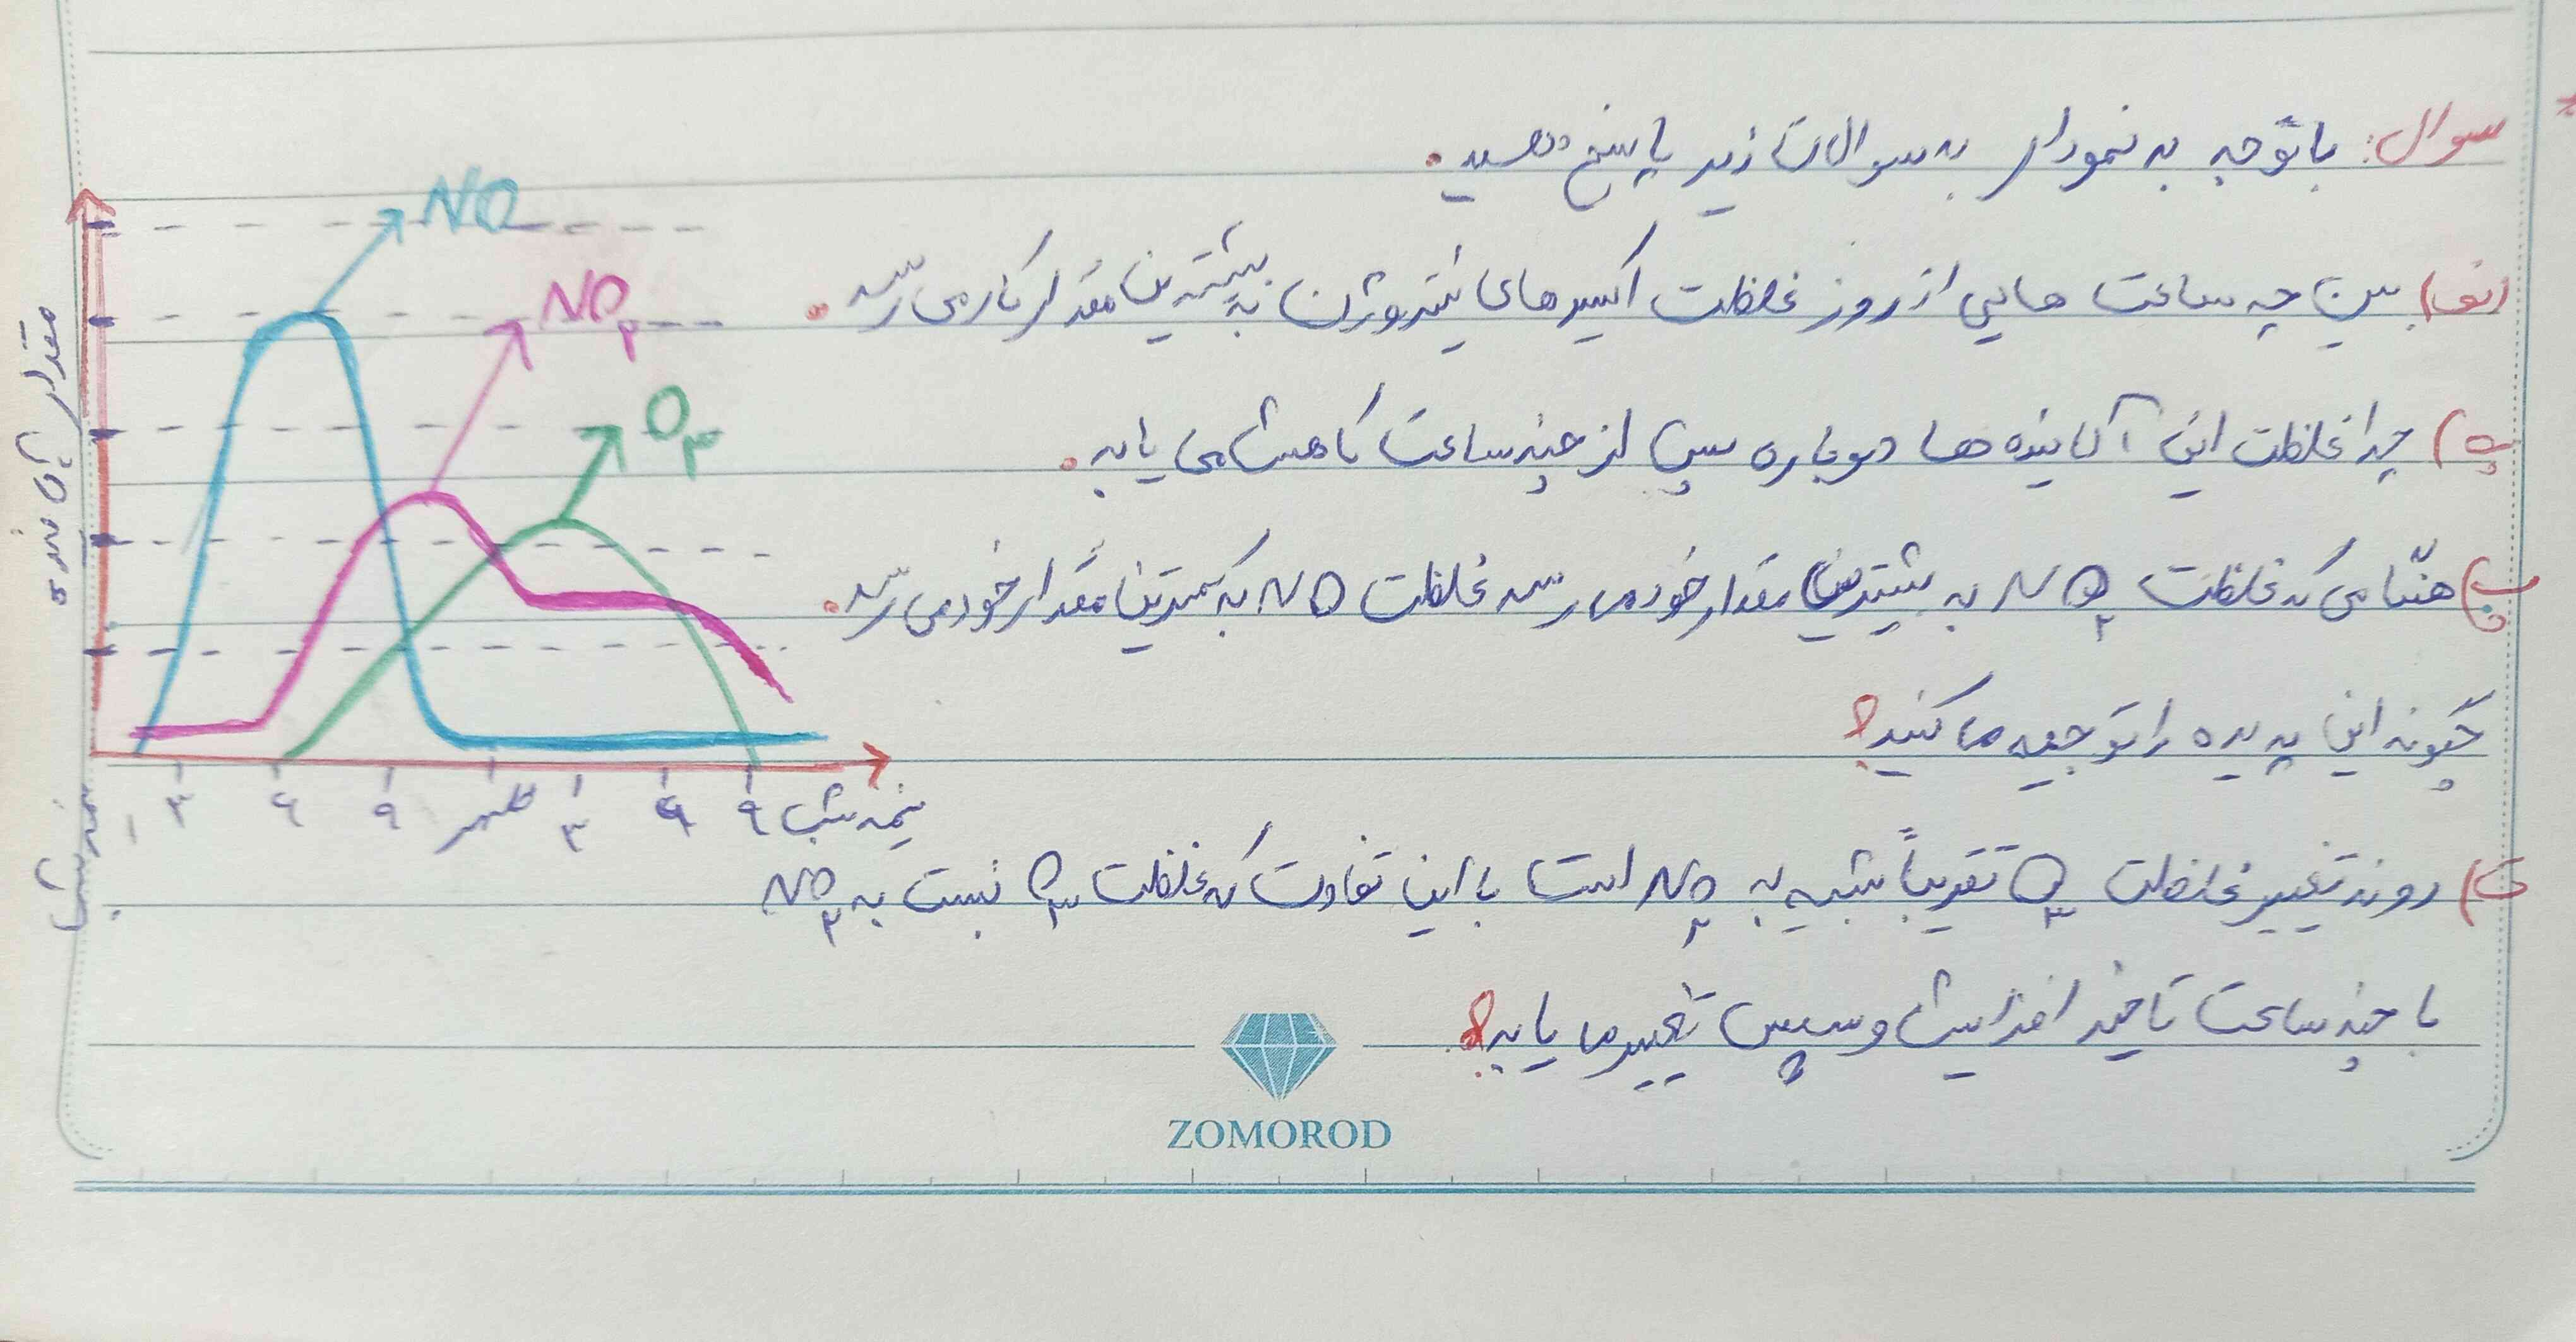 سوال: باتوجه به نمودار به سوالات زیر پاسخ دهید.
الف) بین چه ساعت هایی از روز غلظت اکسیدهای نیتروژن به بیشترین مقدار کار می رسد.
ب) چرا غلظت این آلاینده ها دوباره پس از چند ساعت کاهش می یابد.
پ) هنگامی که غلظت NO۲ به بیشترین مقدار خود می رسد غلظت NO به کمترین مقدار خود می رسد.
چگونه این پدیده را توجیه می کنید؟
ت) روند تغییر غلظت O۳ تقریباً شبیه به NO۲ است با این تفاوت که غلظت O۳ نسبت به NO۲
با چند ساعت تاخیر افزایش و سپس تغییر می یابد؟
NO
NO۲
O۳
مقدار آلاینده
نیمه شب ۳ ۶ ۹ ظهر ۳ ۶ ۹ نیمه شب
ZOMOROD